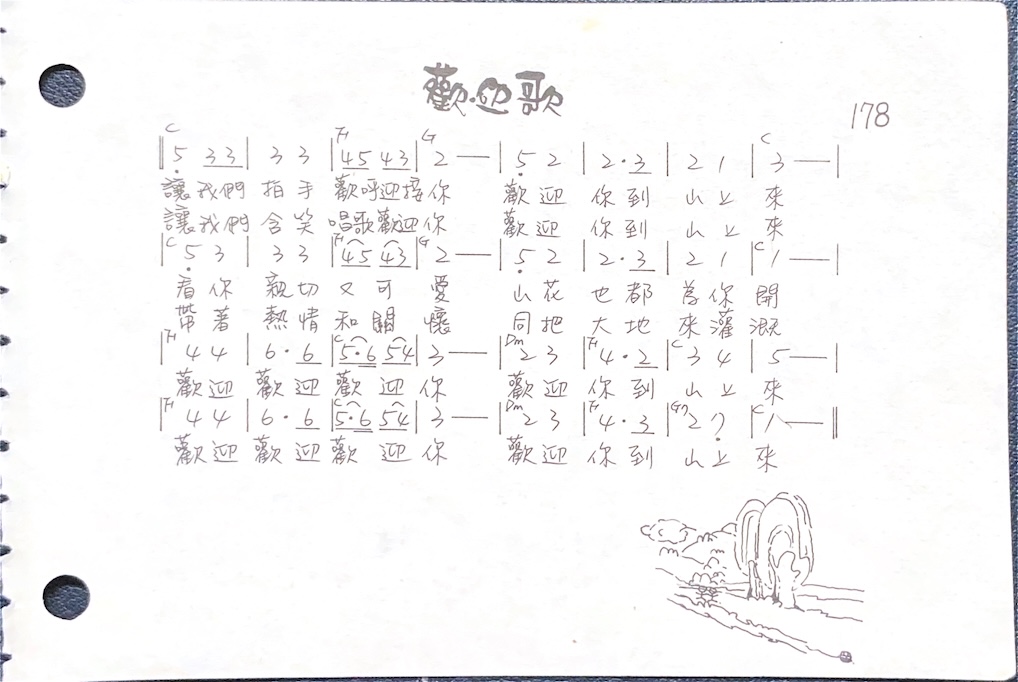 歡迎歌
178
C F G C
5 33 | 3 3 | 45 43 | 2 — | 5 2 | 2· 3 | 2 1 | 3 — |
讓我們 拍手 歡呼迎接你 歡迎 你到 山上 來
讓我們 含笑 唱歌歡迎你 歡迎 你到 山上 來
C F G C
5 3 | 3 3 | 45 43 | 2 — | 5 2 | 2· 3 | 2 1 | 1 — |
看你 親切 又可 愛 山花 也都 為你 開
帶著 熱情 和關 懷 同把 大地 來灌 溉
F C Dm F C
4 4 | 6· 6 | 5·6 54 | 3 — | 2 3 | 4· 2 | 3 4 | 5 — |
歡迎 歡迎 歡迎 你 歡迎 你到 山上 來
F C Dm F G7 C
4 4 | 6· 6 | 5·6 54 | 3 — | 2 3 | 4· 3 | 2 7 | 1 — ||
歡迎 歡迎 歡迎 你 歡迎 你到 山上 來